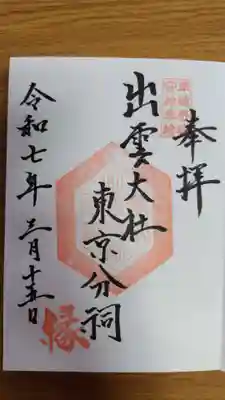 奉拝
出雲大社
東京分祠
令和七年三月十五日
縁